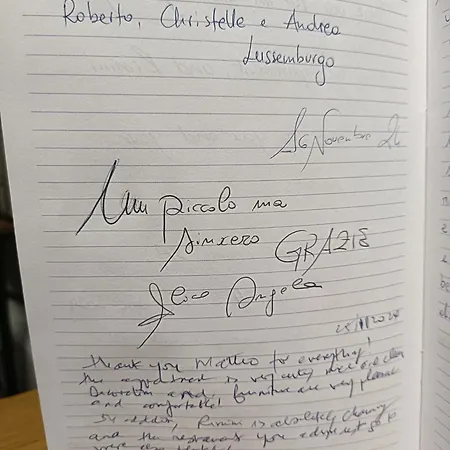 Roberto, Christelle e Andrea
Lussemburgo
26 Novembre 24
Un piccolo ma
sincero GRAZIE
Angela
25/11/2024
Thank you Matteo for everything!
The apartment is very and clean
Decoration and furniture are very pleasant
and comfortable!
In addition, Rimini is absolutely charming
and the restaurant you
were